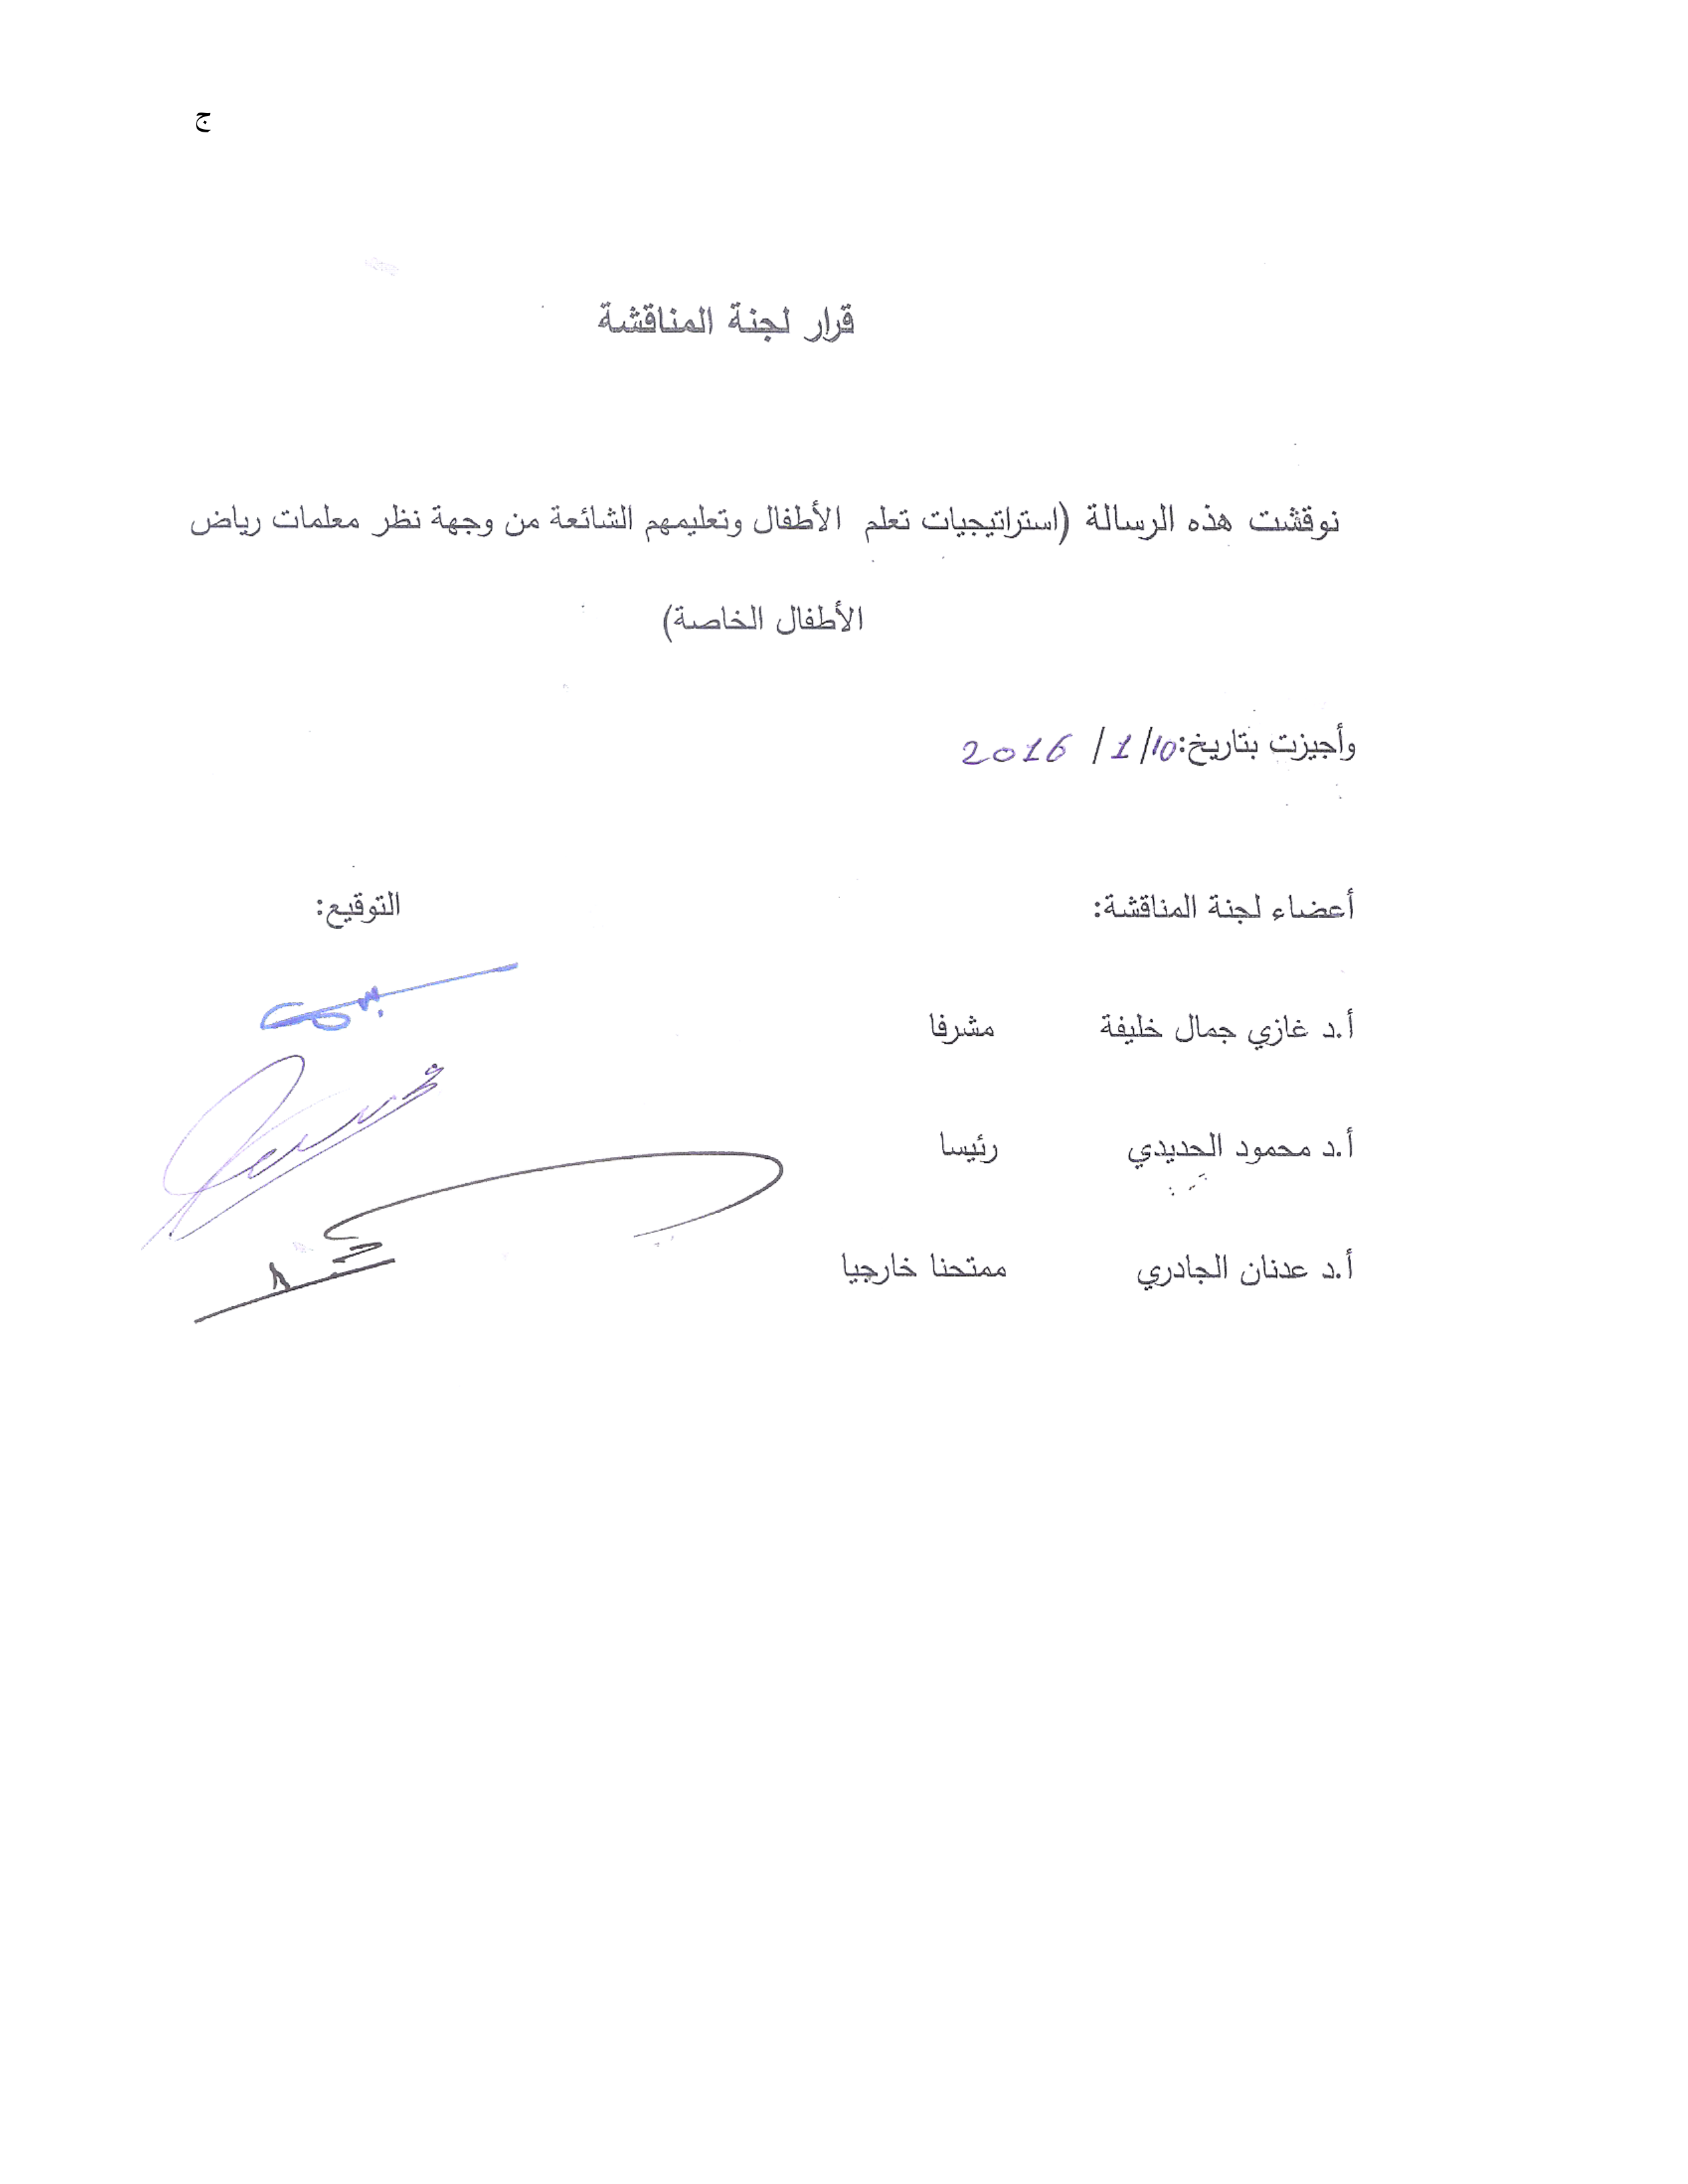 ج
قرار لجنة المناقشة
نوقشت هذه الرسالة (استراتيجيات تعلم الأطفال وتعليمهم الشائعة من وجهة نظر معلمات رياض
الأطفال الخاصة)
وأجيزت بتاريخ: 10/ 1/ 2016
أعضاء لجنة المناقشة: التوقيع:
أ.د غازي جمال خليفة مشرفا
أ.د محمود الحديدي رئيسا
أ.د عدنان الجادري ممتحنا خارجيا